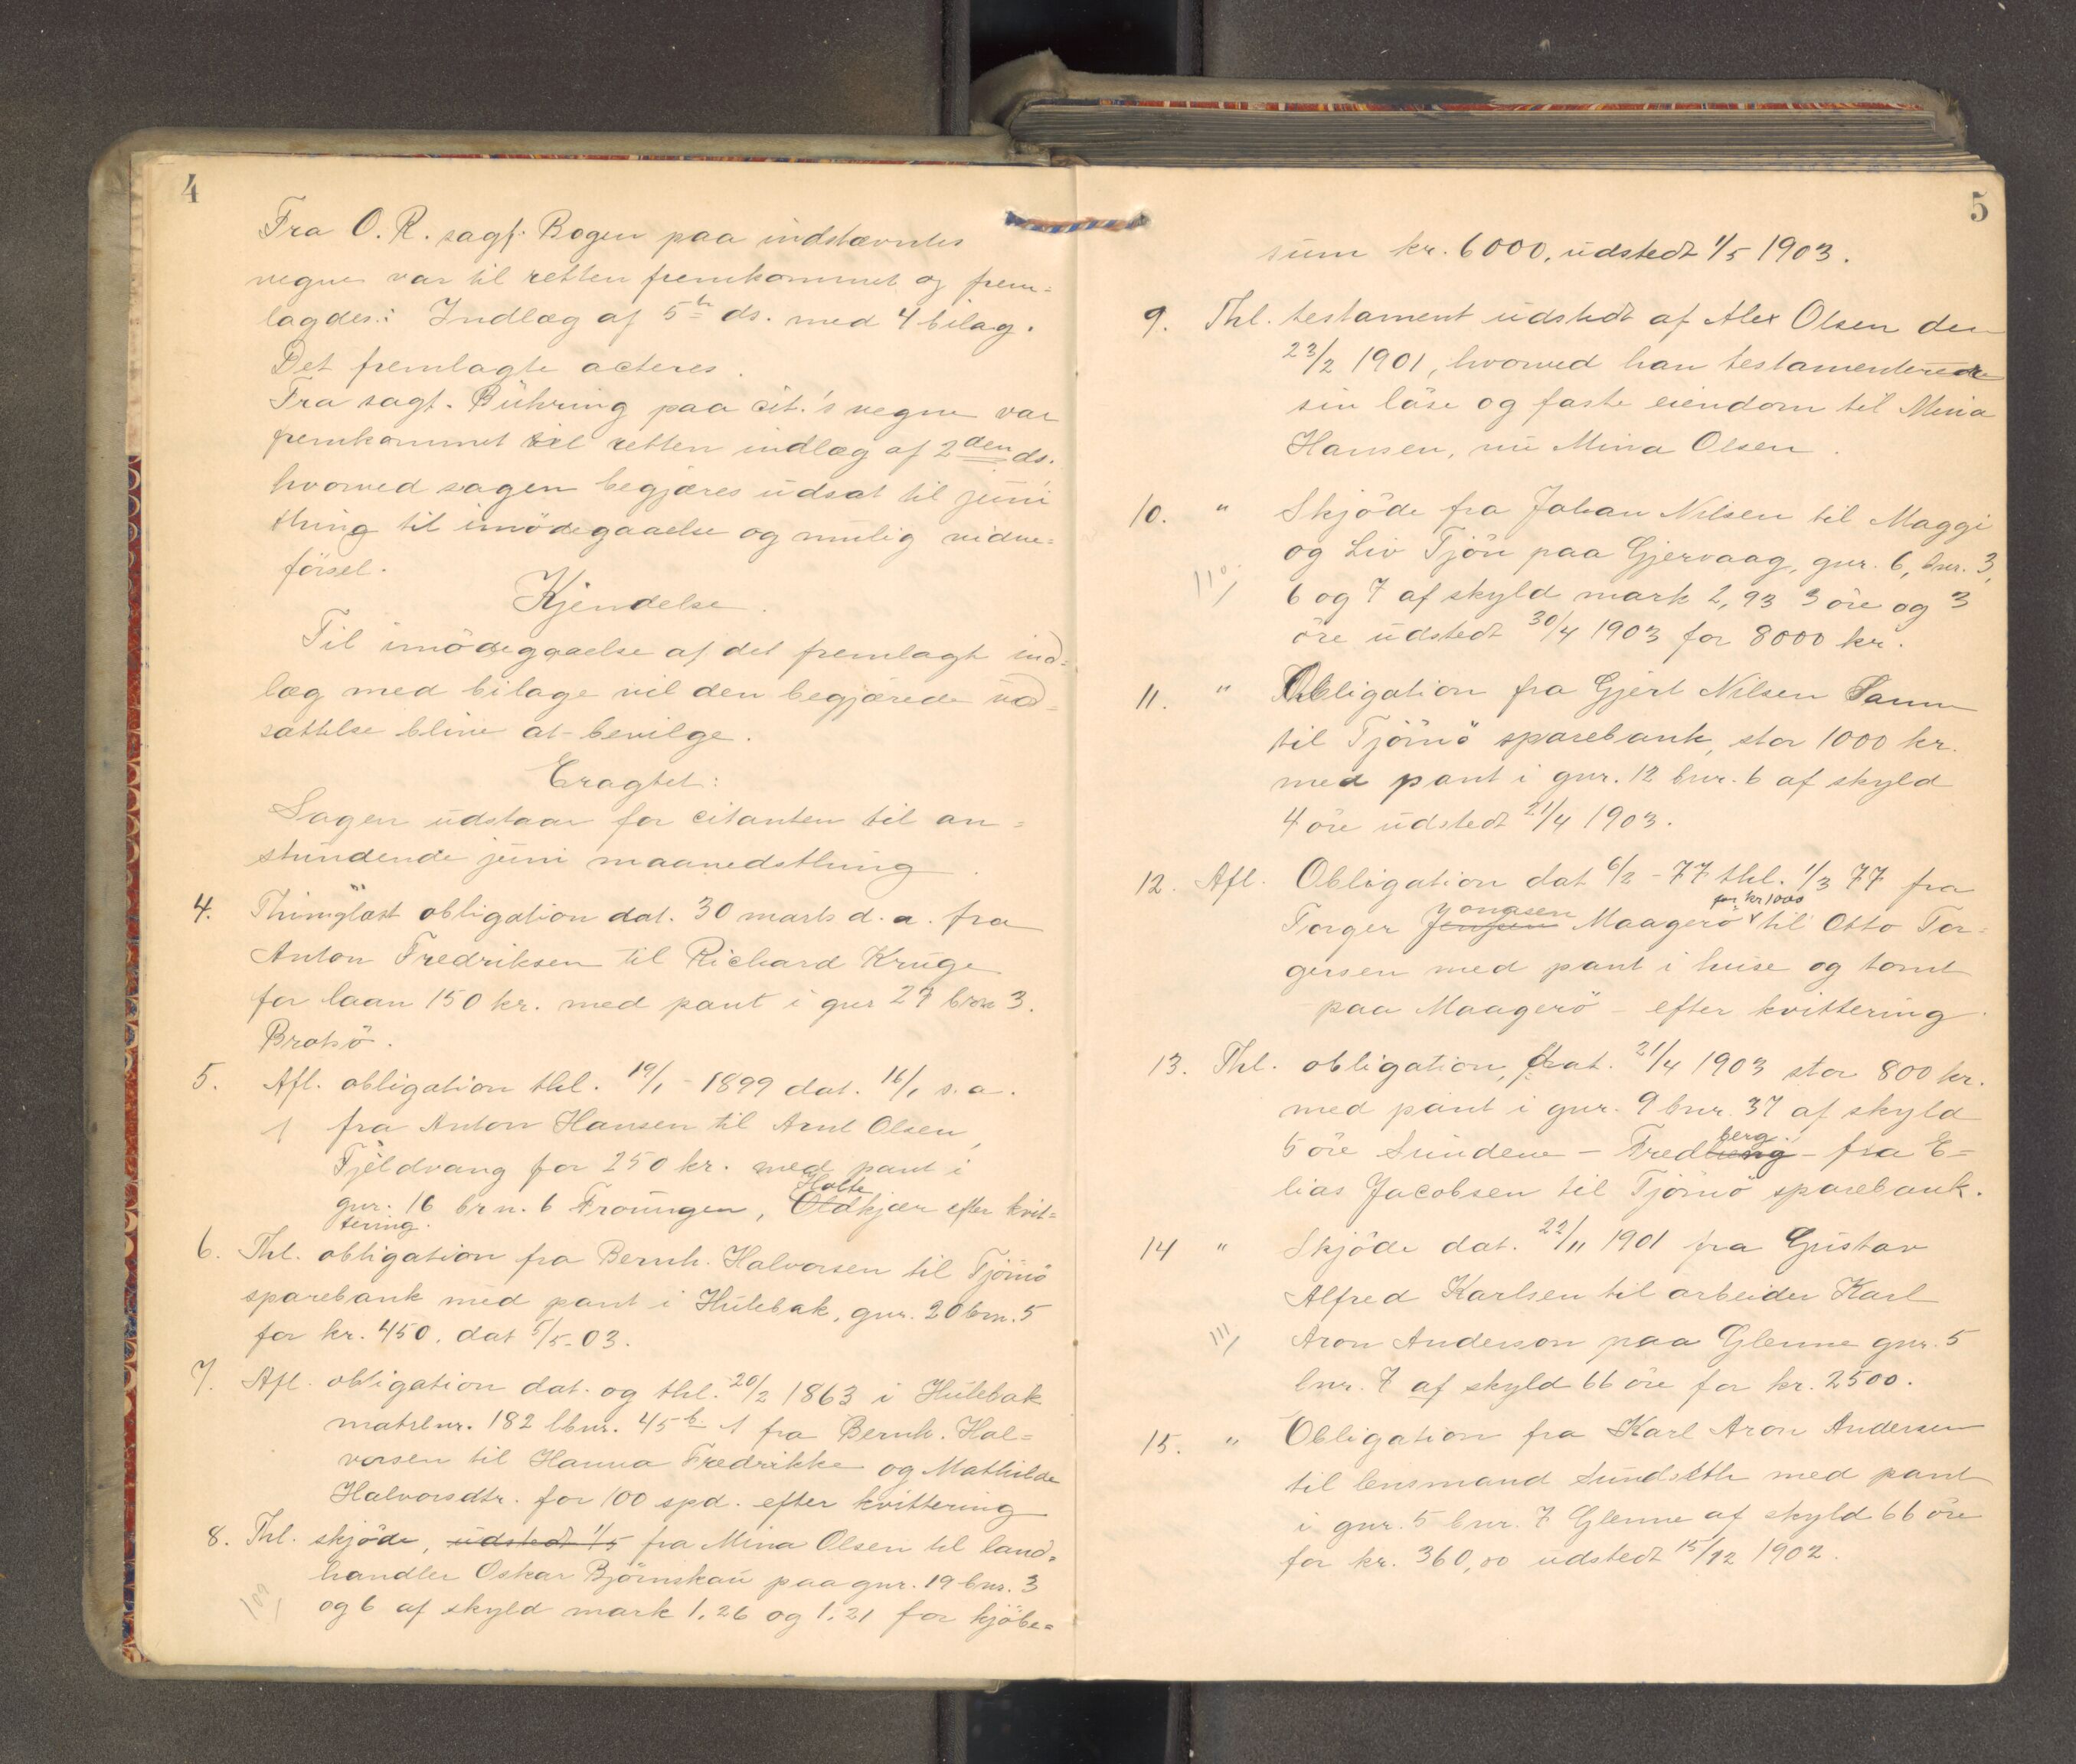 4
Fra O. R. sagf. Bogen paa indstævntes
vegne var til retten fremkommet og frem=
lagdes: Indlæg af 5te ds. med 4 bilag.
Det fremlagte acteres.
Fra sagf. Bühring paa cit.'s vegne var
fremkommet til retten indlæg af 2den ds.
hvorved sagen begjæres udsat til juni
thing til imödegaaelse og mulig vidne=
försel.
Kjendelse.
Til imödeggaelse af det fremlagte ind=
læg med bilage vil den begjærede ud=
sættelse blive at bevilge.
Eragtet:
Sagen udstaar for citanten til an=
stundende juni maanedsthing.
4. Thinglæst obligation dat. 30 marts d. a. fra
Anton Fredriksen til Richard Kruge
for laan 150 kr. med pant i gnr 27 brn 3.
Brötsö.
5. Afl. obligation thl. 19/1 - 1899 dat. 16/1 s. a.
fra Anton Hansen til Arnt Olsen,
Fjeldvang for 250 kr. med pant i
gnr. 16 brn. 6 Fröungen, Oldkjær Holte efter kvit=
tering.
6. Thl. obligation fra Bernh. Halvorsen til Tjömö
sparebank med pant i Hulebak, gnr. 20 brn. 5
for kr. 450, dat 5/5-03.
7. Afl. obligation dat. og thl. 20/2 1863 i Hulebak
matrlnr. 182 lbnr. 45b fra Bernh. Hal=
vorsen til Hanna Fredrikke og Mathilde
Halvorsdtr. for 100 spd. efter kvittering
8. Thl. skjöde, udstedt 1/5 fra Mina Olsen til land=
handler Oskar Björnskau paa gnr. 19 bnr. 3
109 og 6 af skyld mark 1,26 og 1,21 for kjöbe=
5
sum kr. 6000, udstedt 1/5 1903.
9. Thl. testament udstedt af Alex Olsen den
23/2 1901, hvorved han testamenterede
sin löse og faste eiendom til Mina
Hansen, nu Mina Olsen.
10. " Skjöde fra Johan Nilsen til Maggi
og Liv Tjön paa Gjervaag, gnr. 6, bnr. 3,
110 6 og 7 af skyld mark 2,93 3 öre og 3
öre udstedt 30/4 1903 for 8000 kr.
11. " Obligation fra Gjert Nilsen Sann
til Tjömö sparebank, stor 1000 kr.
med pant i gnr. 12 bnr. 6 af skyld
4 öre udstedt 21/4 1903.
12. Afl. Obligation dat 6/2 - 77 thl. 1/3 77 fra
Torger Jensen Jonasen Maagerö for kr 1000 til Otto Tor=
gersen med pant i huse og tomt
paa Maagerö - efter kvittering.
13. Thl. obligation, dat. 21/4 1903 stor 800 kr.
med pant i gnr. 9 bnr. 37 af skyld
5 öre Sundene - Fredheng berg - fra E=
lias Jacobsen til Tjömö sparebank.
14 " Skjöde dat. 22/11 1901 fra Gustav
Alfred Karlsen til arbeider Karl
111 Aron Anderson paa Glenne gnr. 5
bnr. 7 af skyld 66 öre for kr. 2500.
15. " Obligation fra Karl Aron Andersen
til lensmand Sundseth med pant
i gnr. 5 bnr. 7 Glenne af skyld 66 öre
for kr. 360,00 udstedt 15/12 1902.